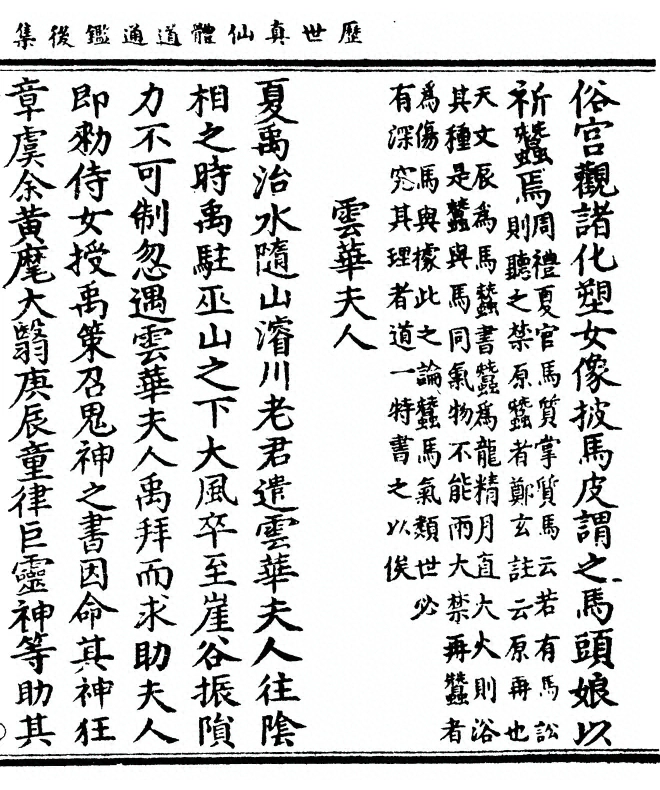 歷世真仙體道通鑑後集
俗宮觀諸化塑女像披馬皮謂之馬頭娘以
祈蠶焉周禮夏官馬質掌質馬云若有馬訟
則聽之禁原蠶者鄭玄註云原再也
天文辰為馬蠶書蠶為龍精月直大火則浴
其種是蠶與馬同氣物不能兩大禁再蠶者
為傷馬與據此之論蠶馬氣類世必
有深究其理者道一特書之以俟
雲華夫人
夏禹治水隨山濬川老君遣雲華夫人往陰
相之時禹駐巫山之下大風卒至崖谷振隕
力不可制忽遇雲華夫人禹拜而求助夫人
即勑侍女授禹策召鬼神之書因命其神狂
章虞余黃麾大翳庚辰童律巨靈神等助其